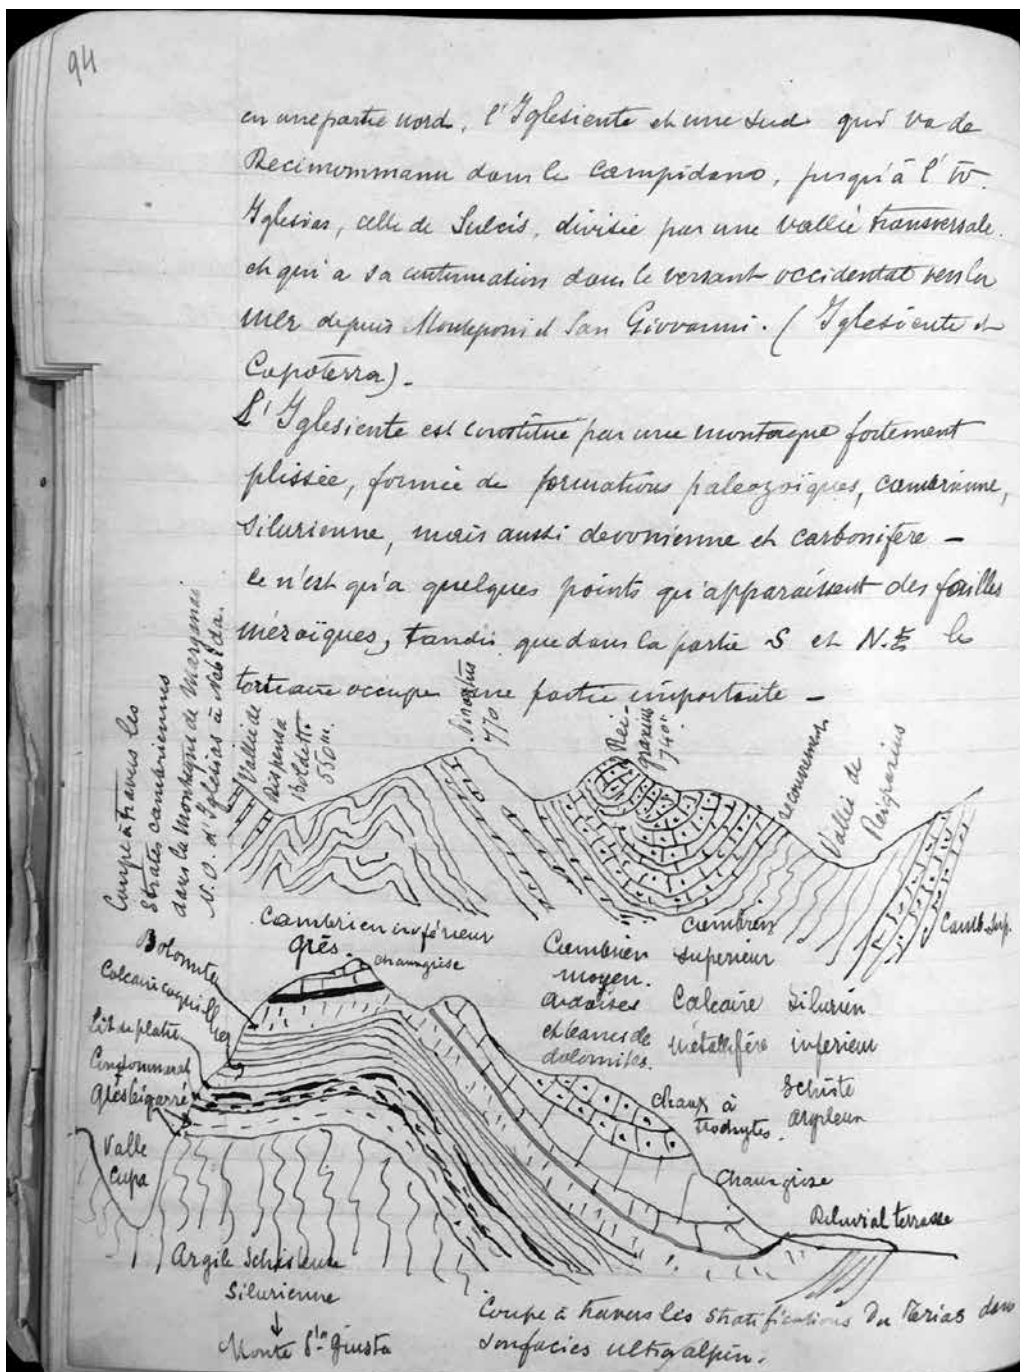 94
en une partie nord, l'Iglesiente et une sud qui va de
Decimommanu dans le Campidano, jusqu'à l'W.
Iglesias, celle de Sulcis, divisée par une vallée transversale.
et qui a sa continuation dans le versant occidental vers la
mer depuis Monteponi et San Giovanni. (Iglesiente et
Capoterra).-
L'Iglesiente est constitué par une montagne fortement
plissée, formée de formations paleozoïques, cambrienne,
silurienne, mais aussi devonienne et carbonifère -
ce n'est qu'a quelques points qu'apparaissent des
mézoïques, tandis que dans la partie S et N.E le
tertiaire occupe une partie importante -
Coupe à travers les
strates cambriennes
dans la Montagne de Marganai
N.O. d'Iglesias à Nebida.
Vallée de
Dispensa
Boldetti.
550 m.
770
740
recouvrement
Vallée de
Reigrarius
Camb. sup.
Cambrien inférieur
grès.
Cambrien
moyen.
ardoises
et bancs de
dolomites.
Cambrien
superieur
Calcaire
métallifère
Silurien
inferieur
Schiste
argileux
Dolomite
Calcaire coquillier
Lit de platre
Conglommerat
Grès bigarré
Valle
Cupa
chaux grise
chaux à
trochytes.
Chaux grise
Diluvial terrasse
Argile Schisteuse
Silurienne
↓
Monte Sta Giusta
Coupe à travers les stratifications du Trias dans
son facies ultralpin.